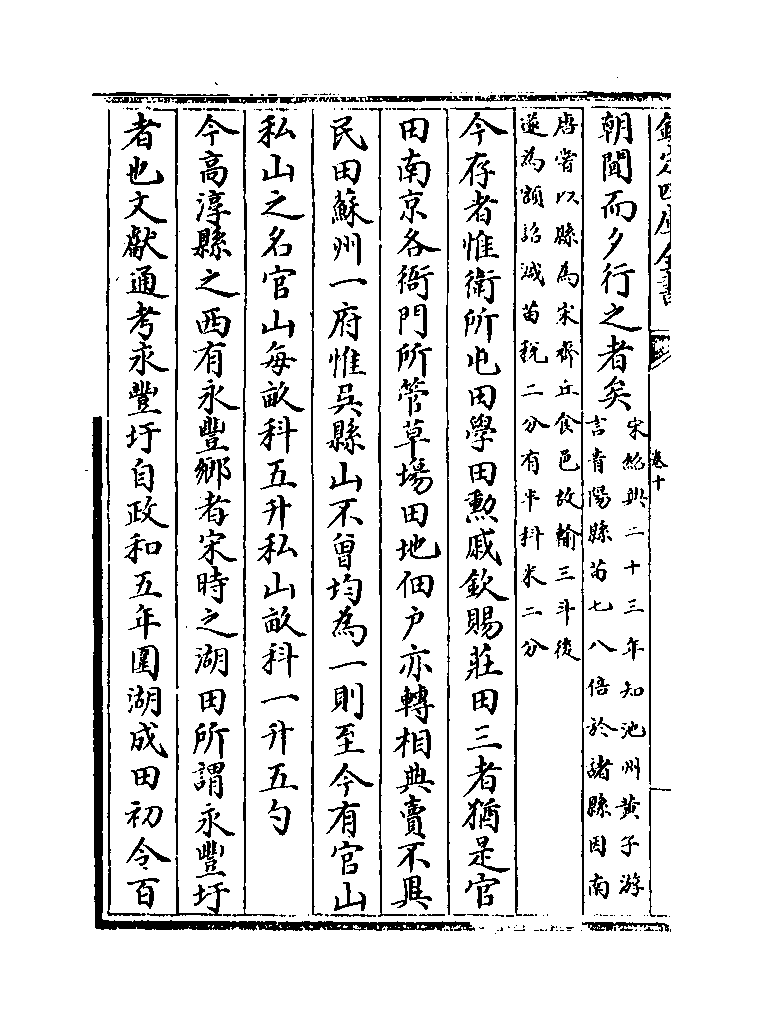 欽定四庫全書
卷十
朝聞而夕行之者矣宋紹興二十三年知池州黄子游
言青陽縣苗七八倍於諸縣因南
唐嘗以縣為宋齊丘食邑故輸三斗後
遂為額詔減苗稅二分有半科米二分
今存者惟衛所屯田學田勲戚欽賜莊田三者猶是官
田南京各衙門所管草場田地佃户亦轉相典賣不異
民田蘇州一府惟吳縣山不曾均為一則至今有官山
私山之名官山每畝科五升私山畝科一升五勺
今高淳縣之西有永豐鄉者宋時之湖田所謂永豐圩
者也文獻通考永豐圩自政和五年圍湖成田初令百